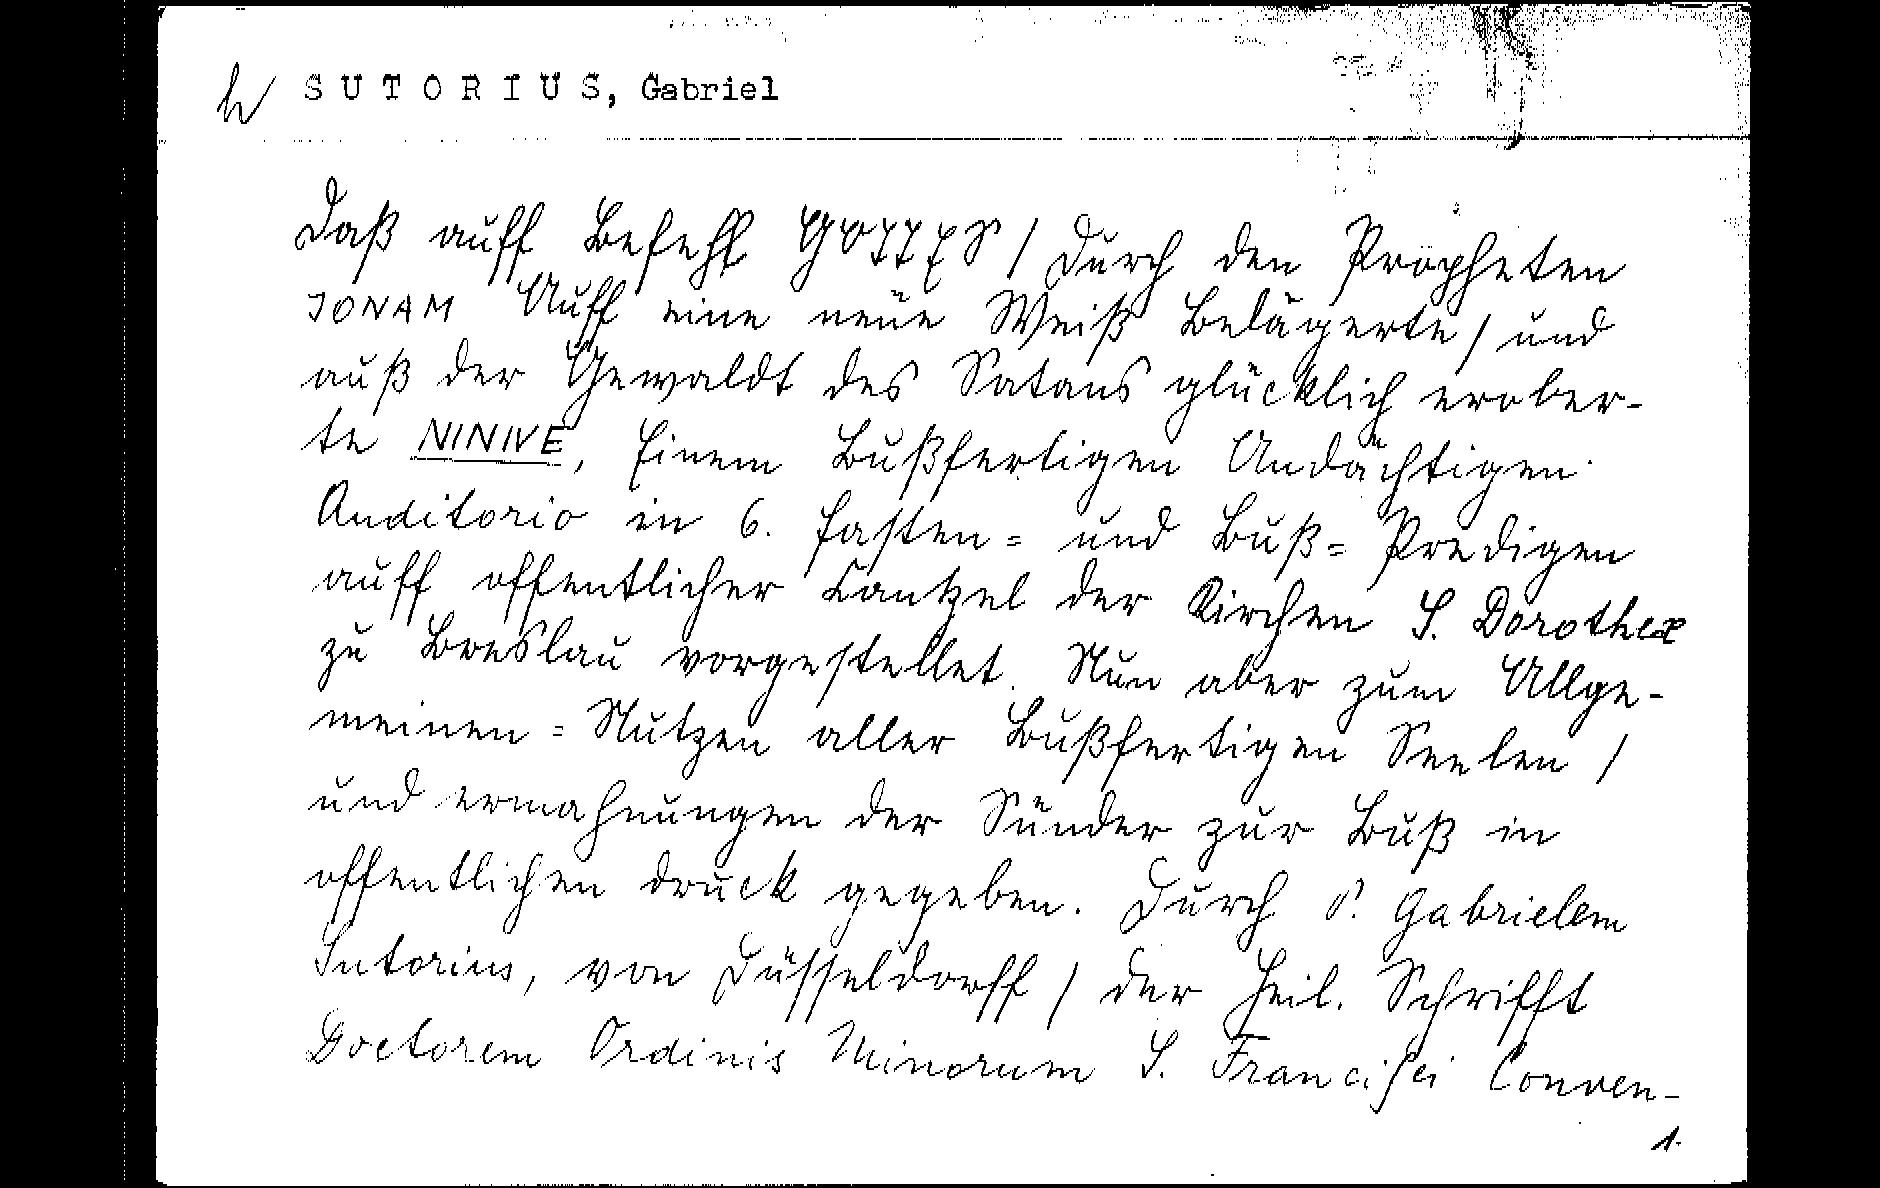 h SUTORIUS, Gabriel
Daß auff Befehl GOTTES / durch den Propheten
JONAM Auff eine neue Weiß Belägerte / und
auß der Gewaldt des Satans glücklich erober-
te NINIVE, Einem Bußfertigen Andächtigen
Auditorio in 6. Fasten= und Buß= Predigen
auff offentlicher Cantzel der Kirchen S. Dorotheæ
zu Breslau vorgestellet. Nun aber zum Allge-
meinen=Nutzen aller Bußfertigen Seelen /
und ermahnungen der Sünder zur Buß in
offentlichen druck gegeben. Durch P. Gabrielem
Sutorius, von Düsseldorff / der Heil. Schrifft
Doctorem Ordinis Minorum S. Francisci Conven-
1.